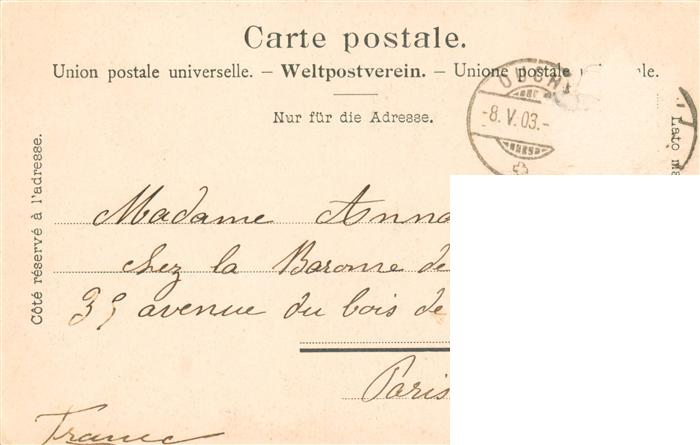 Carte postale.
Union postale universelle. – Weltpostverein. – Unione postale
Nur für die Adresse.
-8. V. 03.-
Côté réservé à l'adresse.
Lato
Madame Anna
chez la Baronne de
35 avenue du bois de
Paris
France